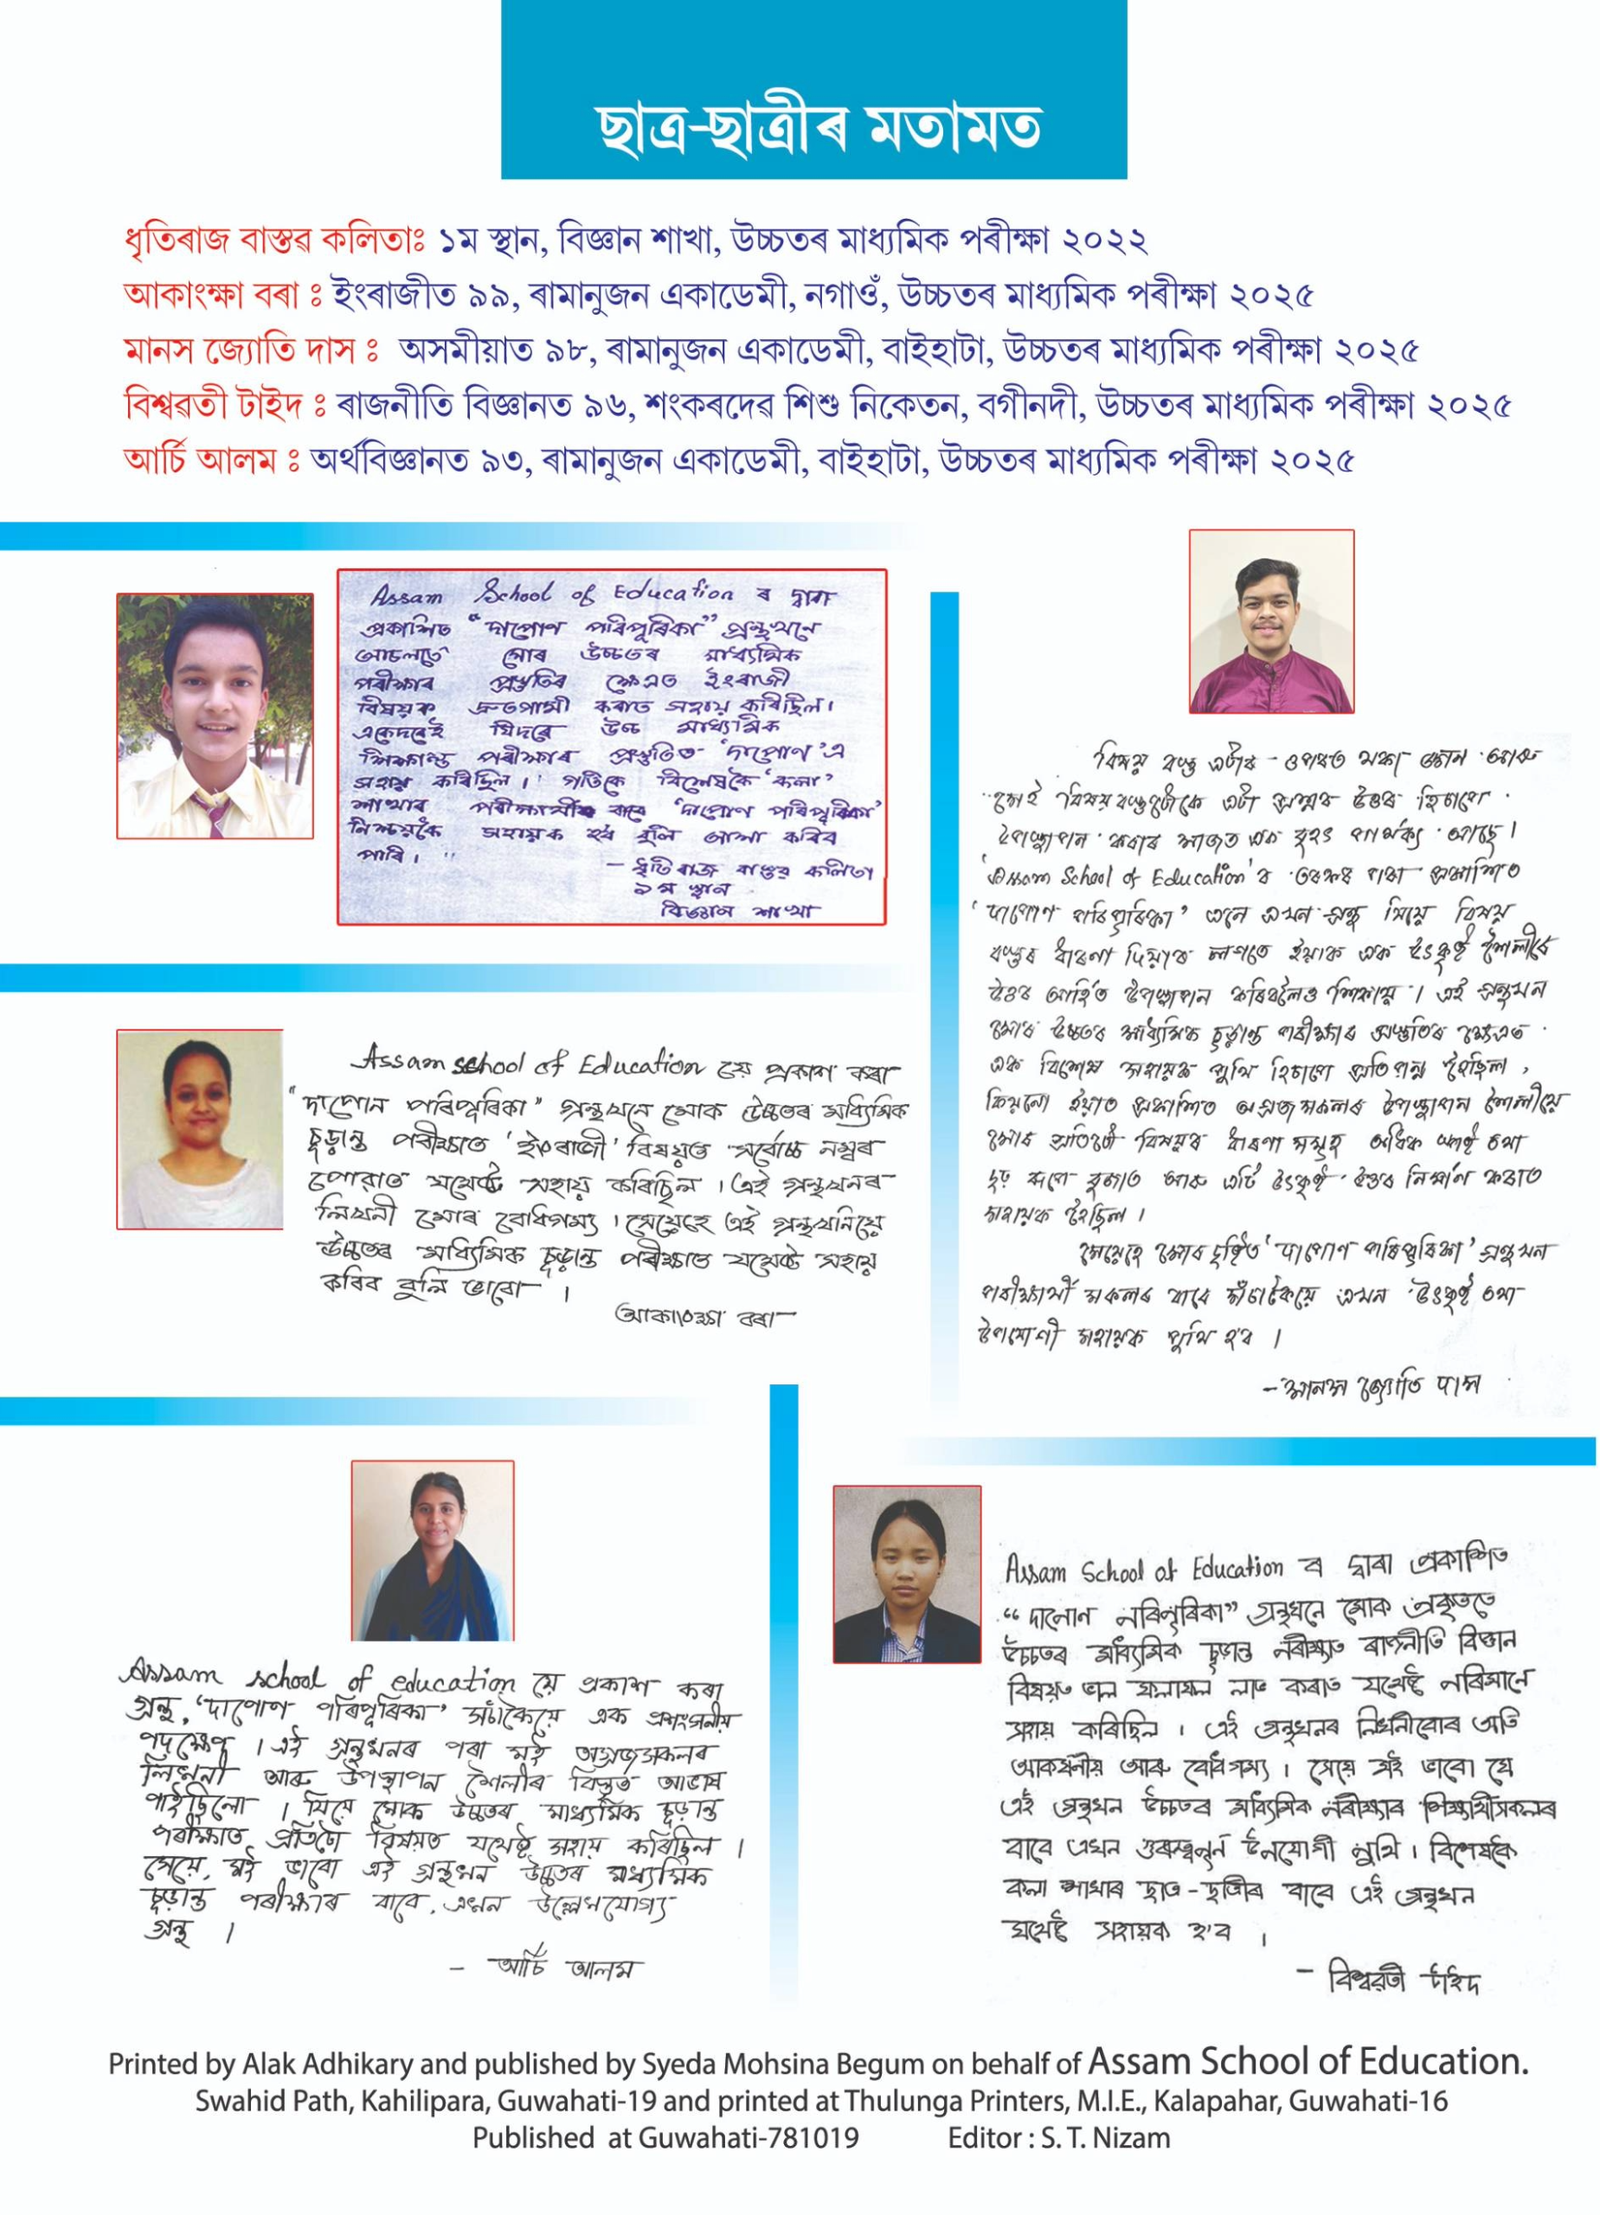 ছাত্ৰ-ছাত্ৰীৰ মতামত
ধৃতিৰাজ বাস্তৱ কলিতাঃ ১ম স্থান, বিজ্ঞান শাখা, উচ্চতৰ মাধ্যমিক পৰীক্ষা ২০২২
আকাংক্ষা বৰা ঃ ইংৰাজীত ৯৯, ৰামানুজন একাডেমী, নগাওঁ, উচ্চতৰ মাধ্যমিক পৰীক্ষা ২০২৫
মানস জ্যোতি দাস ঃ অসমীয়াত ৯৮, ৰামানুজন একাডেমী, বাইহাটা, উচ্চতৰ মাধ্যমিক পৰীক্ষা ২০২৫
বিশ্বৱতী টাইদ ঃ ৰাজনীতি বিজ্ঞানত ৯৬, শংকৰদেৱ শিশু নিকেতন, বগীনদী, উচ্চতৰ মাধ্যমিক পৰীক্ষা ২০২৫
আৰ্চি আলম ঃ অৰ্থবিজ্ঞানত ৯৩, ৰামানুজন একাডেমী, বাইহাটা, উচ্চতৰ মাধ্যমিক পৰীক্ষা ২০২৫
Assam School of Education ৰ দ্বাৰা
প্ৰকাশিত "দাপোণ পৰিপূৰিকা" গ্ৰন্থখনে
আচলতে মোৰ উচ্চতৰ মাধ্যমিক
পৰীক্ষাৰ প্ৰস্তুতিৰ ক্ষেত্ৰত ইংৰাজী
বিষয়ক দ্ৰুতগামী কৰাত সহায় কৰিছিল।
একেদৰেই যিদৰে উচ্চ মাধ্যমিক
শিক্ষান্ত পৰীক্ষাৰ প্ৰস্তুতিত 'দাপোণ'এ
সহায় কৰিছিল। গতিকে বিশেষকৈ 'কলা'
শাখাৰ পৰীক্ষাৰ্থীৰ বাবে 'দাপোণ পৰিপূৰিকা'
নিশ্চয়কৈ সহায়ক হব বুলি আশা কৰিব
পাৰি। "
- ধৃতিৰাজ বাস্তৱ কলিতা
১ম স্থান
বিজ্ঞান শাখা
বিষয় বস্তু এটাৰ ওপৰত থকা জ্ঞান আৰু
সেই বিষয়বস্তুটোকে এটা প্ৰশ্নৰ উত্তৰ হিচাপে
উপস্থাপন কৰাৰ মাজত এক বৃহৎ পাৰ্থক্য আছে।
'Assam School of Education'ৰ তৰফৰ পৰা প্ৰকাশিত
'দাপোণ পৰিপূৰিকা' এনে এখন গ্ৰন্থ যিয়ে বিষয়
বস্তুৰ ধাৰণা দিয়াৰ লগতে ইয়াক এক উৎকৃষ্ট শৈলীৰে
উত্তৰ আৰ্হিত উপস্থাপন কৰিবলৈও শিকায়। এই গ্ৰন্থখন
মোৰ উচ্চতৰ মাধ্যমিক চূড়ান্ত পৰীক্ষাৰ প্ৰস্তুতিৰ ক্ষেত্ৰত
এক বিশেষ সহায়ক পুথি হিচাপে প্ৰতিপন্ন হৈছিল,
কিয়নো ইয়াত প্ৰকাশিত অগ্ৰজসকলৰ উপস্থাপন শৈলীয়ে
মোৰ প্ৰতিটো বিষয়ৰ ধাৰণা সমূহ অধিক স্পষ্ট তথা
দৃঢ় ৰূপে বুজাত আৰু এটি উৎকৃষ্ট উত্তৰ নিৰ্মাণ কৰাত
সহায়ক হৈছিল।
সেয়েহে মোৰ দৃষ্টিত 'দাপোণ পৰিপূৰিকা' গ্ৰন্থখন
পৰীক্ষাৰ্থী সকলৰ বাবে সঁচাকৈয়ে এখন উৎকৃষ্ট তথা
উপযোগী সহায়ক পুথি হ'ব।
-মানস জ্যোতি দাস
Assam school of Education য়ে প্ৰকাশ কৰা
"দাপোন পৰিপূৰিকা" গ্ৰন্থখনে মোক উচ্চতৰ মাধ্যমিক
চূড়ান্ত পৰীক্ষাত 'ইংৰাজী' বিষয়ত সৰ্বোচ্চ নম্বৰ
পোৱাত যথেষ্ট সহায় কৰিছিল। এই গ্ৰন্থখনৰ
লিখনী মোৰ বোধগম্য। সেয়েহে এই গ্ৰন্থখনিয়ে
উচ্চতৰ মাধ্যমিক চূড়ান্ত পৰীক্ষাত যথেষ্ট সহায়
কৰিব বুলি ভাবো।
আকাংক্ষা বৰা
Assam school of education য়ে প্ৰকাশ কৰা
গ্ৰন্থ, 'দাপোণ পৰিপূৰিকা' সঁচাকৈয়ে এক প্ৰশংসনীয়
পদক্ষেপ। এই গ্ৰন্থখনৰ পৰা মই অগ্ৰজসকলৰ
লিখনী আৰু উপস্থাপন শৈলীৰ বিস্তৃত আভাষ
পাইছিলো। যিয়ে মোক উচ্চতৰ মাধ্যমিক চূড়ান্ত
পৰীক্ষাত প্ৰতিটো বিষয়ত যথেষ্ট সহায় কৰিছিল।
সেয়ে, মই ভাবো এই গ্ৰন্থখন উচ্চতৰ মাধ্যমিক
চূড়ান্ত পৰীক্ষাৰ বাবে এখন উল্লেখযোগ্য
গ্ৰন্থ।
- আৰ্চি আলম
Assam School of Education ৰ দ্বাৰা প্ৰকাশিত
"দাপোণ পৰিপূৰিকা" গ্ৰন্থখনে মোক প্ৰকৃততে
উচ্চতৰ মাধ্যমিক চূড়ান্ত পৰীক্ষাত ৰাজনীতি বিজ্ঞান
বিষয়ত ভাল ফলাফল লাভ কৰাত যথেষ্ট পৰিমানে
সহায় কৰিছিল। এই গ্ৰন্থখনৰ লিখনীবোৰ অতি
আকৰ্ষনীয় আৰু বোধগম্য। সেয়ে মই ভাবো যে
এই গ্ৰন্থখন উচ্চতৰ মাধ্যমিক পৰীক্ষাৰ শিক্ষাৰ্থীসকলৰ
বাবে এখন গুৰুত্বপূৰ্ন উপযোগী পুথি। বিশেষকৈ
কলা শাখাৰ ছাত্ৰ-ছাত্ৰীৰ বাবে এই গ্ৰন্থখন
যথেষ্ট সহায়ক হ'ব।
- বিশ্বৱতী টাইদ
Printed by Alak Adhikary and published by Syeda Mohsina Begum on behalf of Assam School of Education.
Swahid Path, Kahilipara, Guwahati-19 and printed at Thulunga Printers, M.I.E., Kalapahar, Guwahati-16
Published at Guwahati-781019 Editor : S. T. Nizam